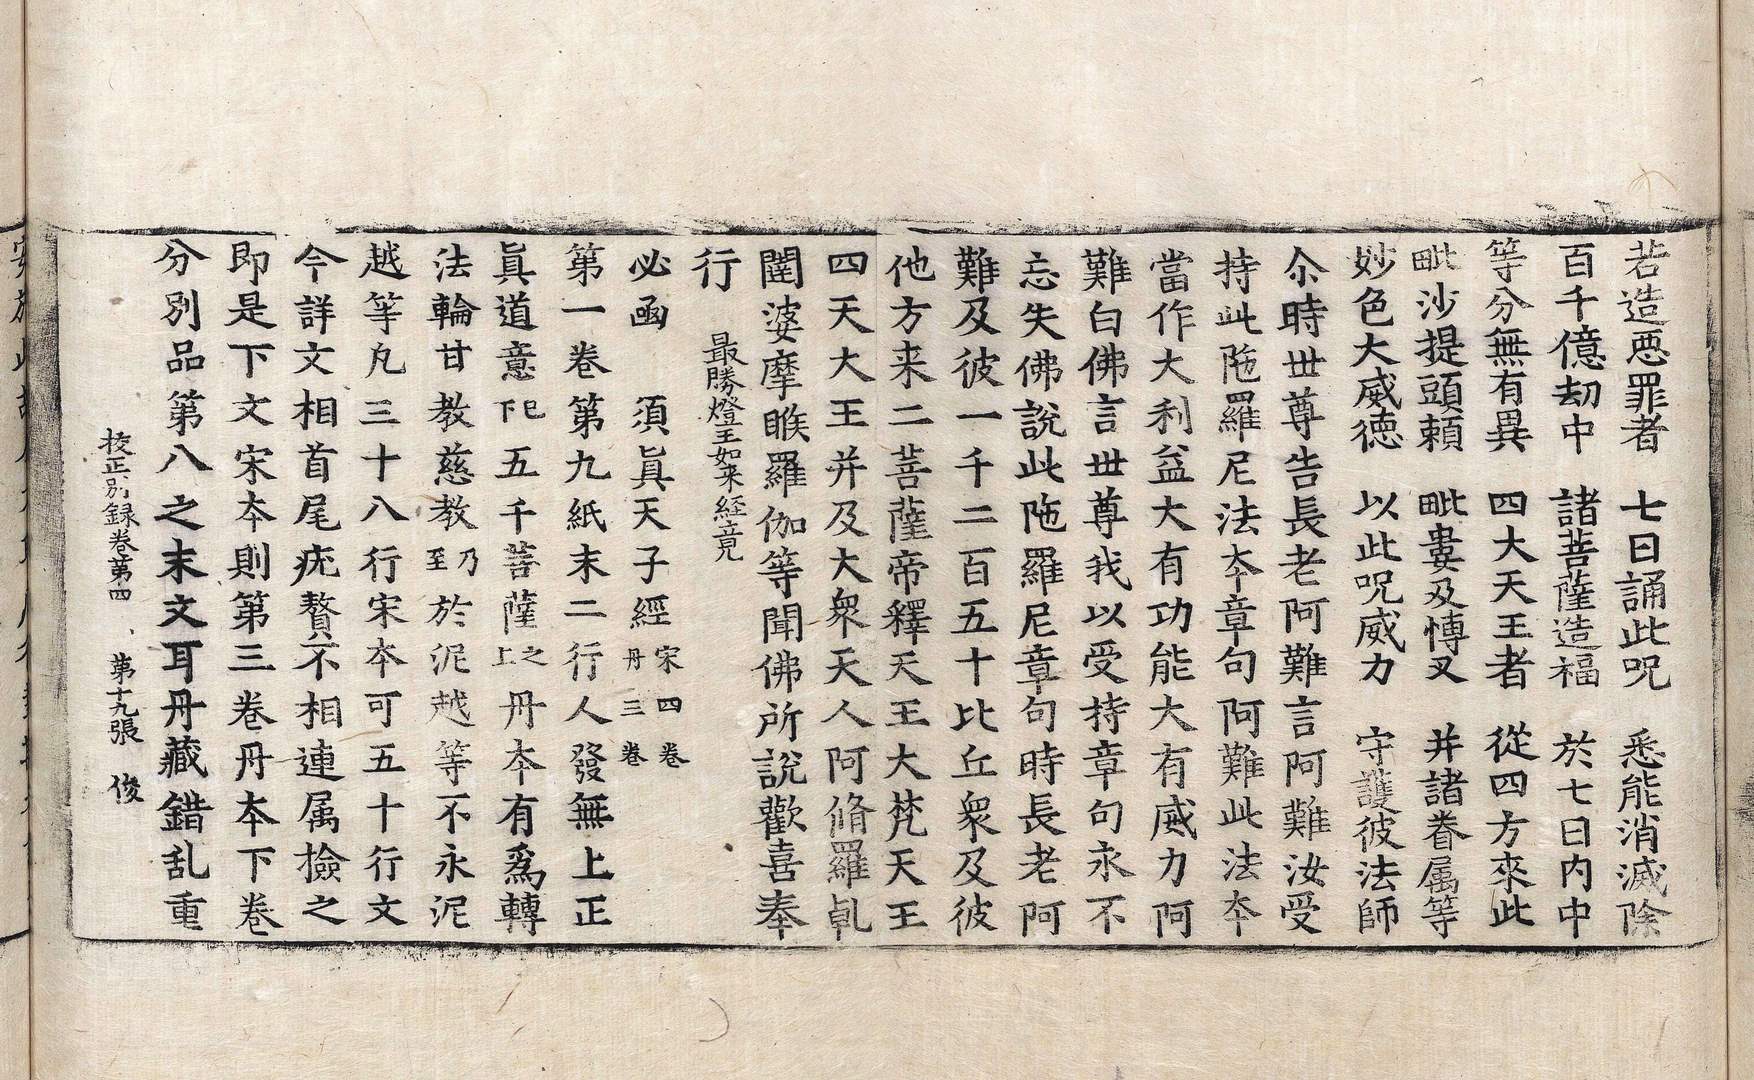 若造惡罪者　七日誦此呪　悉能消滅除
百千億劫中　諸菩薩造福　於七日內中
等分無有異　四大天王者　從四方來此
毗沙提頭頼　毗婁及愽叉　并諸眷属等
妙色大威徳　以此呪威力　守護彼法師
尒時丗尊告長老阿難言阿難汝受
持此陁羅尼法夲章句阿難此法夲
當作大利益大有功能大有威力阿
難白佛言丗尊我以受持章句永不
忘失佛說此陁羅尼章句時長老阿
難及彼一千二百五十比丘衆及彼
他方来二菩薩帝釋天王大梵天王
四天大王并及大衆天人阿脩羅乹
闥婆摩睺羅伽等聞佛所說歡喜奉
行　最勝燈王如来経竟
必函　須眞天子經宋四卷丹三卷
第一卷第九紙末二行人發無上正
眞道意下巳五千菩薩之上丹夲有爲轉
法輪甘教慈教乃至於泥越等不永泥
越等凢三十八行宋夲可五十行文
今詳文相首尾疣贅不相連属撿之
即是下文宋夲則第三卷丹夲下卷
分別品第八之末文耳丹藏錯乱重
挍正別録卷第四　第十九張　俊